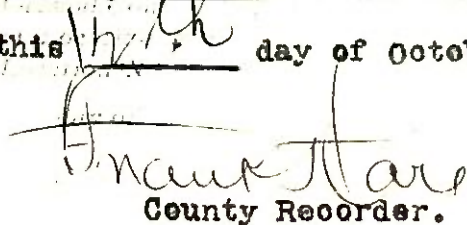 this 12th day of Octo
Frank Hare
County Recorder.